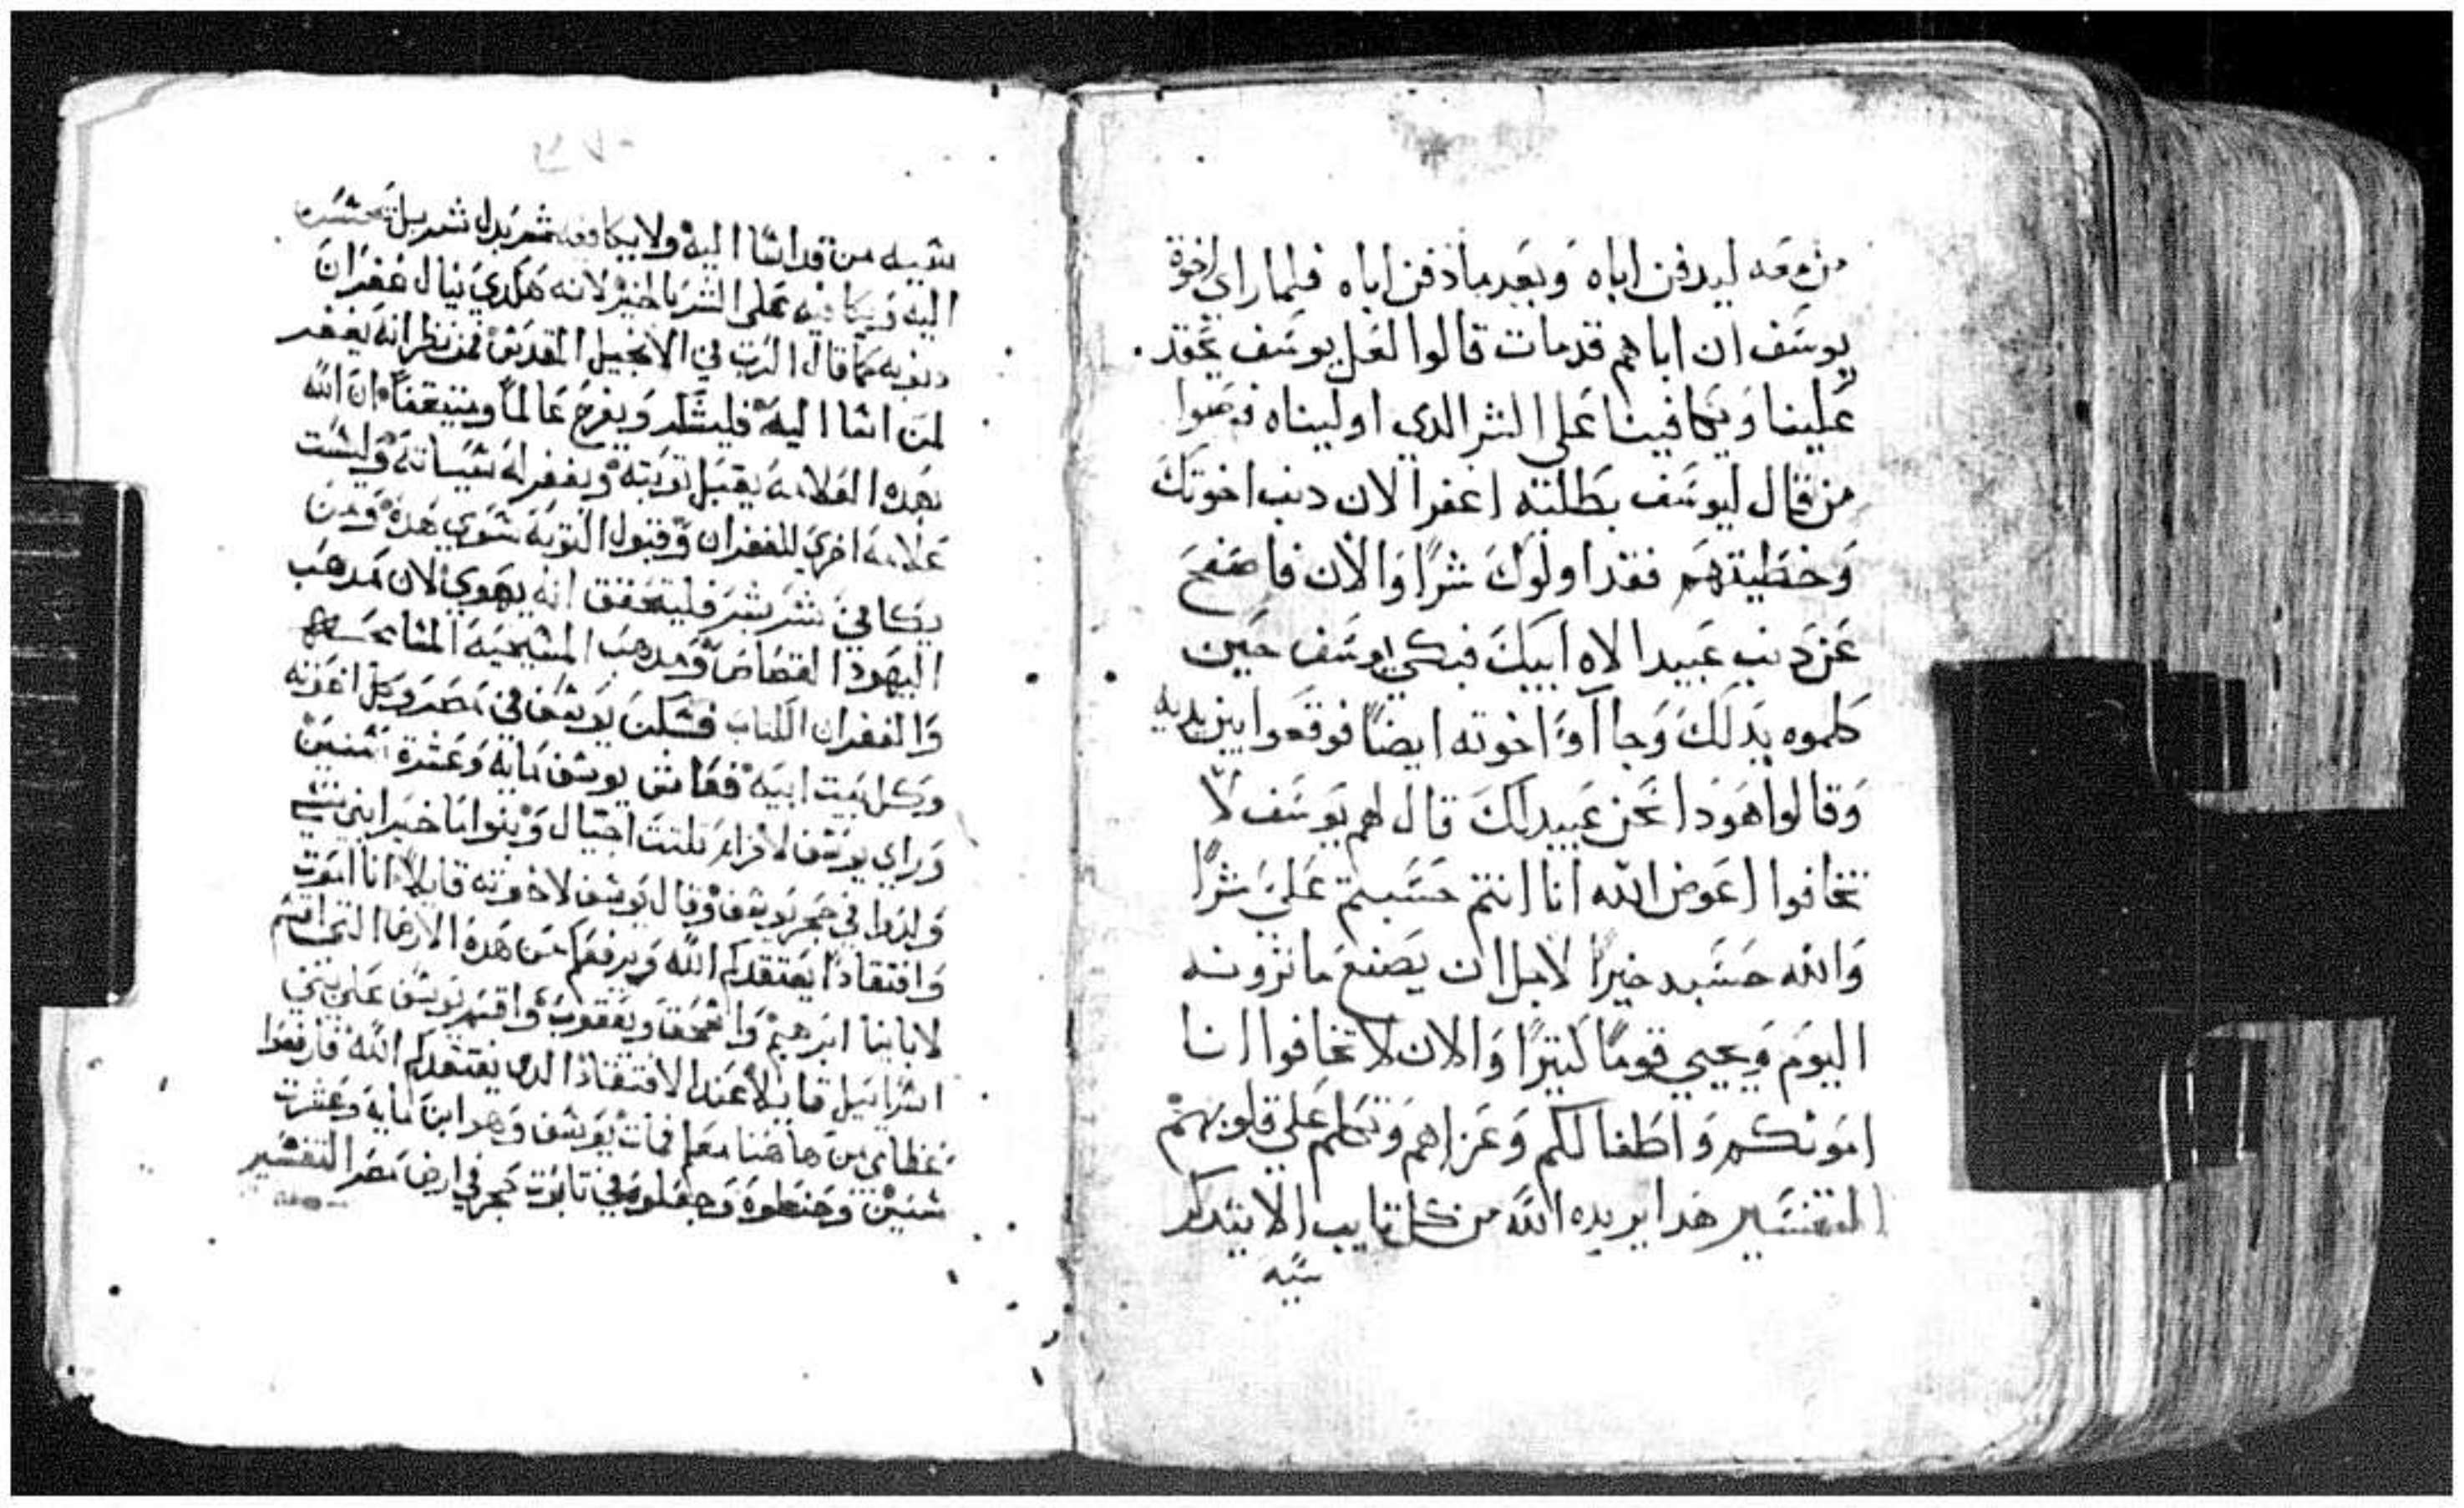 من معه ليدفن اباه وبعد ما دفن اباه فلما راي اخوة
يوسف ان اباهم قد مات قالوا لعل يوسف يحقد
علينا ويكافينا على الشر الدي اوليناه فمضوا
من قال ليوسف بطلبته اغفر الان دنب اخوتك
وخطيتهم فقد اولوك شرًا والان فاصفح
عن دنب عبيد الاه ابيك فبكي يوسف حين
كلموه بدلك وجاآوا اخوته ايضًا فوقعوا بين يديه
وقالوا هودا نحن عبيدلك قال لهم يوسف لا
تخافوا اعوض الله انا انتم حسبتم علي شرًا
والله حسبه خيرًا لاجل ان يصنع ما ترونه
اليوم ويحيي قومًا كتيرًا والان لا تخافوا انا
امونكم واطفالكم وعزاهم وتكلم علي قلوبهم
التفسير هدا يريده الله من كل تايب الا يتدكر
سيه
٢٧٠
سيه من قد اسا اليه ولا يكافيه شر بدل شر بل يحسن
اليه ويكافيه على الشر بالخير لانه هكدي ينال غفران
دنوبه كما قال الرب في الانجيل المقدس فمن نظر انه يغفر
لمن اسا اليه فليسلم ويفرح عالمًا ومتيقنًا ان الله
بهده العلامه يقبل توبته ويغفر له سياته وليست
علامه اخري للغفران وقبول التوبة سوي هده ومن
يكافي شر بشر فليتحقق انه يهودي لان مدهب
اليهود القصاص ومدهب المسيحيه المسامحـه
والغفران الكتاب فسكن يوسف في مصر وكل اخوته
وكل بيت ابيه فعاش يوسف مايه وعشرة سنين
وراي يوسف لافرام تلتت اجيال وبنوا ماخير ابن منسي
ولدوا في حجر يوسف وقال يوسف لاخوته قايلا انا اموت
وافتقادًا يفتقدكم الله ويرفعكم من هده الارض التي اقسم
لابابنا ابرهيم واسحق ويعقوب واقسم يوسف علي بني
اسراييل قايلا عند الافتقاد الدي يفتقدكم الله فارفعوا
عظامي من هاهنا معكم فمات يوسف وهو ابن مايه وعشرت
سنين وحنطوه وجعلوه في تابوت حجر في ارض مصر التفسير